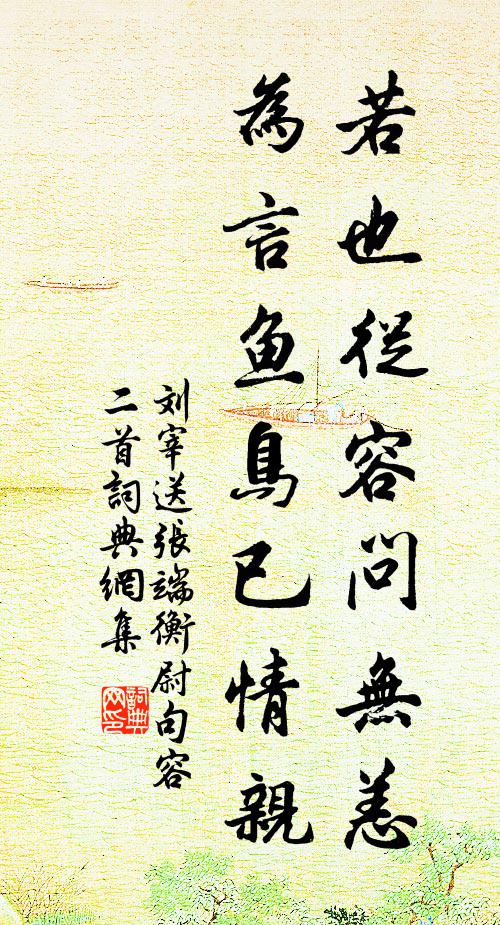 若也從容問無恙
為言魚鳥已情親
刘宰送張端衡尉句容
二首詞典網集
詞典
网印